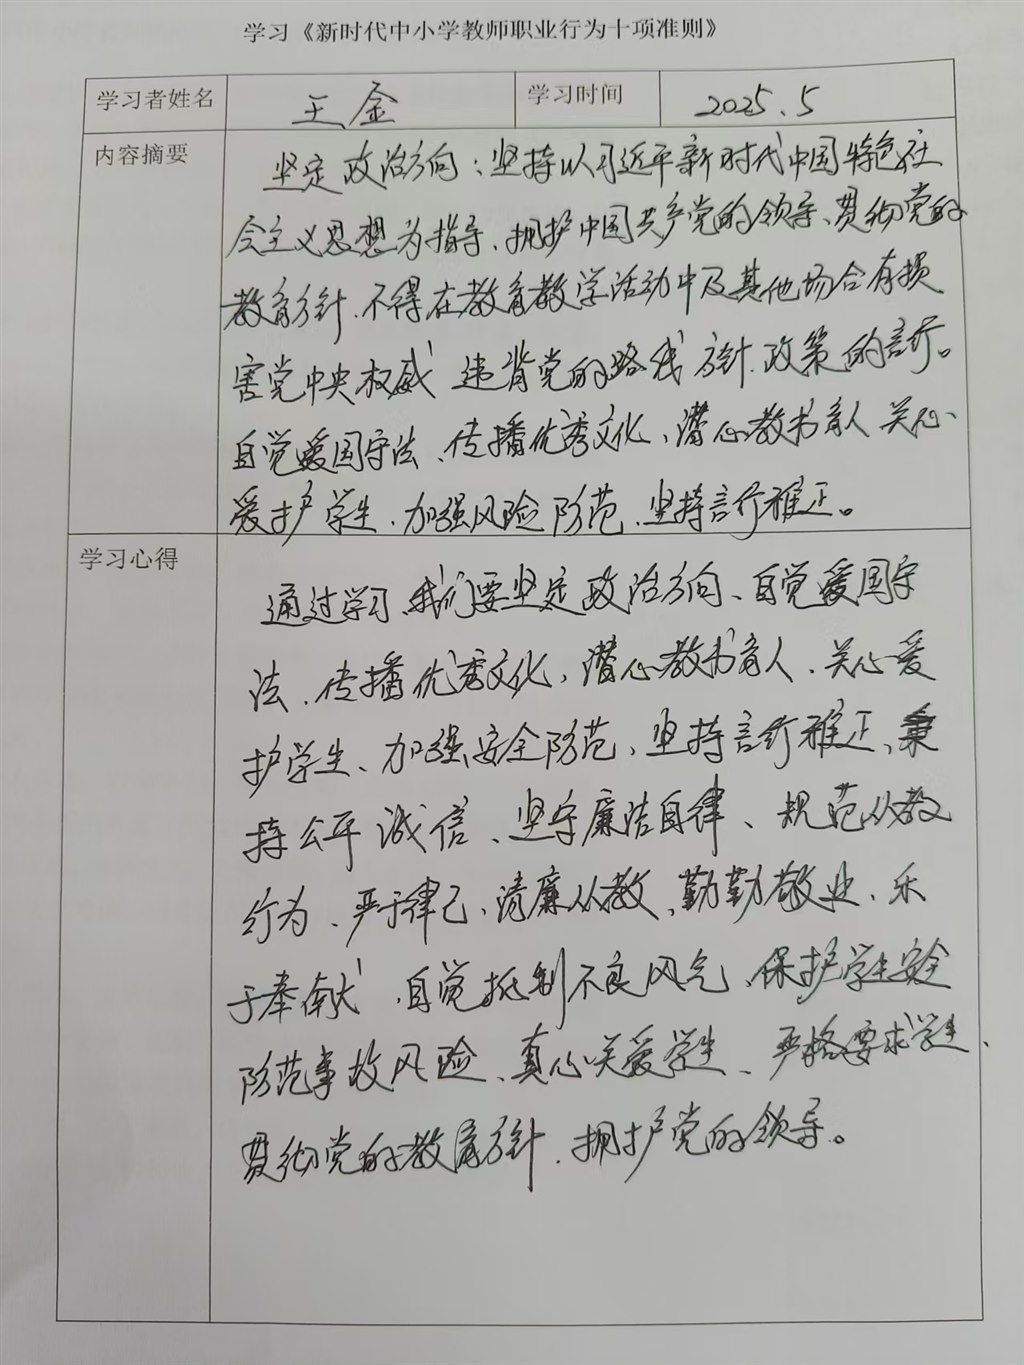 学习《新时代中小学教师职业行为十项准则》
学习者姓名 王金 学习时间 2025.5
内容摘要
坚定政治方向：坚持以习近平新时代中国特色社
会主义思想为指导、拥护中国共产党的领导、贯彻党的
教育方针、不得在教育教学活动中及其他场合有损
害党中央权威、违背党的路线方针、政策的言行。
自觉爱国守法、传播优秀文化、潜心教书育人、关心
爱护学生、加强风险防范、坚持言行雅正。
学习心得
通过学习、我们要坚定政治方向、自觉爱国守
法、传播优秀文化，潜心教书育人、关心爱
护学生、加强安全防范、坚持言行雅正、秉
持公平诚信、坚守廉洁自律、规范从教
行为、严于律己、清廉从教、勤勤敬业、乐
于奉献、自觉抵制不良风气、保护学生安全
防范事故风险、真心关爱学生、严格要求学生、
贯彻党的教育方针、拥护党的领导。